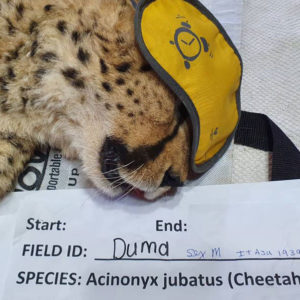 ortable
UP
Start: End:
FIELD ID: Duma Sex M
SPECIES: Acinonyx jubatus (Cheetah